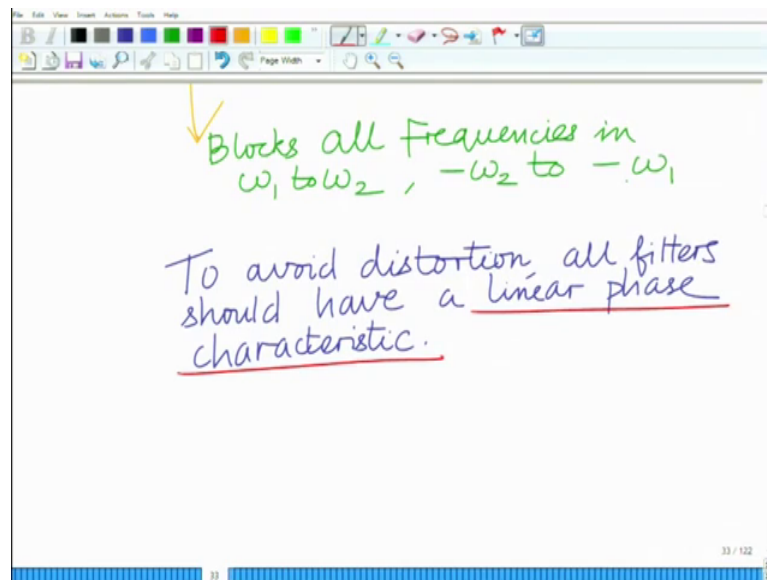 File Edit View Insert Actions Tools Help
B I
Page Width
Blocks all Frequencies in
ω₁ to ω₂ , -ω₂ to -ω₁
To avoid distortion, all filters
should have a linear phase
characteristic.
33 / 122
33